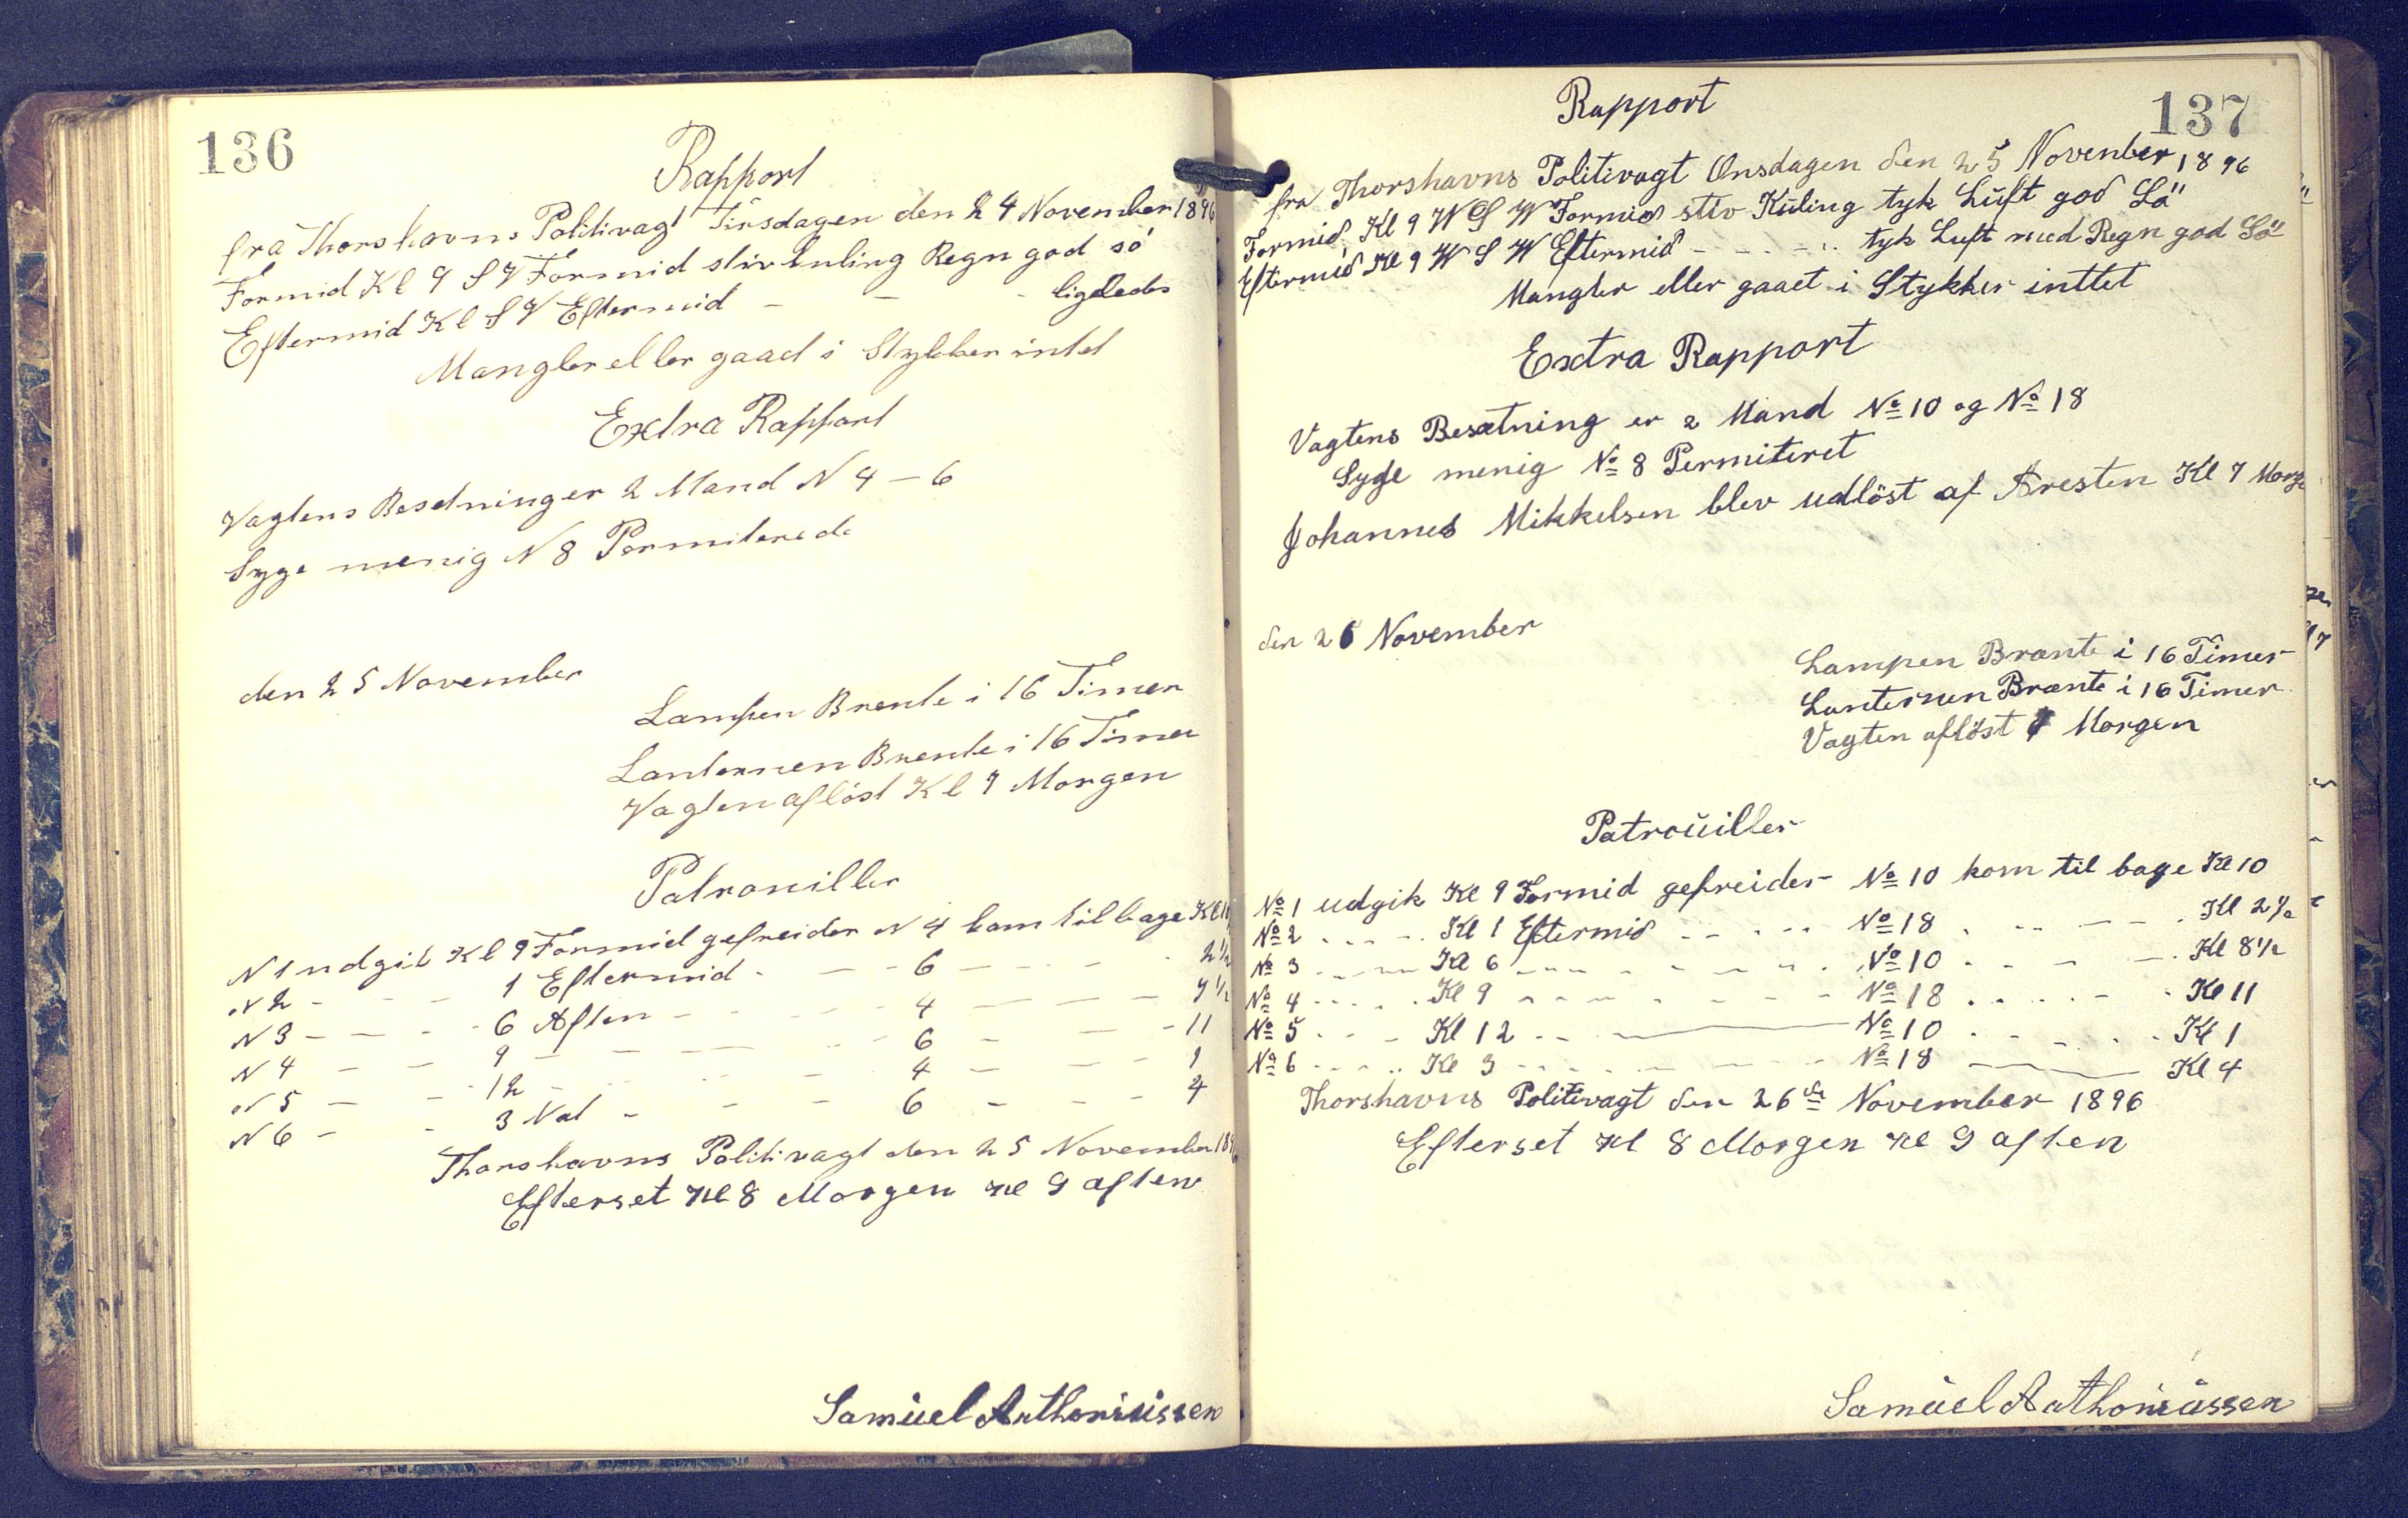 136
Rapport
fra Thorshavns Politivagt Tirsdagen den 24 November 1896
Formid Kl 9 S V Formid stiv kuling Regn god só
Eftermid Kl S V Eftermid - - - ligeledes
Mangler eller gaaed i Stykker inted
Extra Rapport
Vagtens Besetninger 2 Mand N 4 - 6
Syge menig N 8 Permiterede
den 25 November
Lampen Brente i 16 Timer
Lanternen Brente i 16 Timer
Vagten aflöst Kl 7 Morgen
Patrouiller
N 1 udgik Kl 9 Formid gefreider N 4 kom tilbage Kl 11
N 2 - - - 1 Eftermid - - - 6 - - - 2½
N 3 - - - 6 Aften - - - 4 - - - 7½
N 4 - - 9 - - - 6 - - - 11
N 5 - - 12 - - - 4 - - - 1
N 6 - - 3 Nat - - - 6 - - - 4
Thorshavns Politivagt den 25 November 1896
Efterset Kl 8 Morgen Kl 9 aften
Samúel Anthoniússen
137
Rapport
fra Thorshavns Politivagt Onsdagen den 25 November 1896
Formid. Kl 9 W S W Formid stiv Kúling tyk Lúft god Sö
Eftermid Kl 9 W S W Eftermid - - - tyk Luft med Regn god Sö
Mangler eller gaaet i Stykker inttet
Extra Rapport
Vagtens Besætning er 2 Mand No 10 og No 18
Syge menig No 8 Permiteret
Johannes Mikkelsen blev udlöst af Aresten Kl 7 Morge
den 26 November
Lampen Brænte i 16 Timer
Lanternen Brænte i 16 Timer
Vagten aflöst 7 Morgen
Patroúiller
No 1 udgik Kl 9 Formid gefreider No 10 kom til bage Kl 10
No 2 - - - Kl 1 Eftermid - - - No 18 - - - Kl 2½
No 3 - - - Kl 6 - - - No 10 - - - Kl 8½
No 4 - - - Kl 9 - - - No 18 - - - Kl 11
No 5 - - - Kl 12 - - - No 10 - - - Kl 1
No 6 - - - Kl 3 - - - No 18 - - - Kl 4
Thorshavns Politivagt den 26de November 1896
Efterset Kl 8 Morgen Kl 9 aften
Samúel Anthoniússen